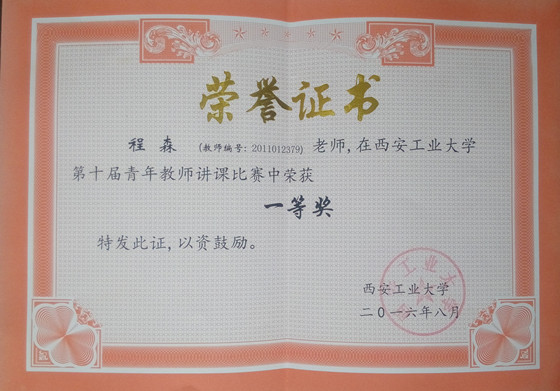 荣誉证书
程森 (教师编号:2011012379) 老师,在西安工业大学
第十届青年教师讲课比赛中荣获
一等奖
特发此证,以资鼓励。
西安工业大学
二〇一六年八月